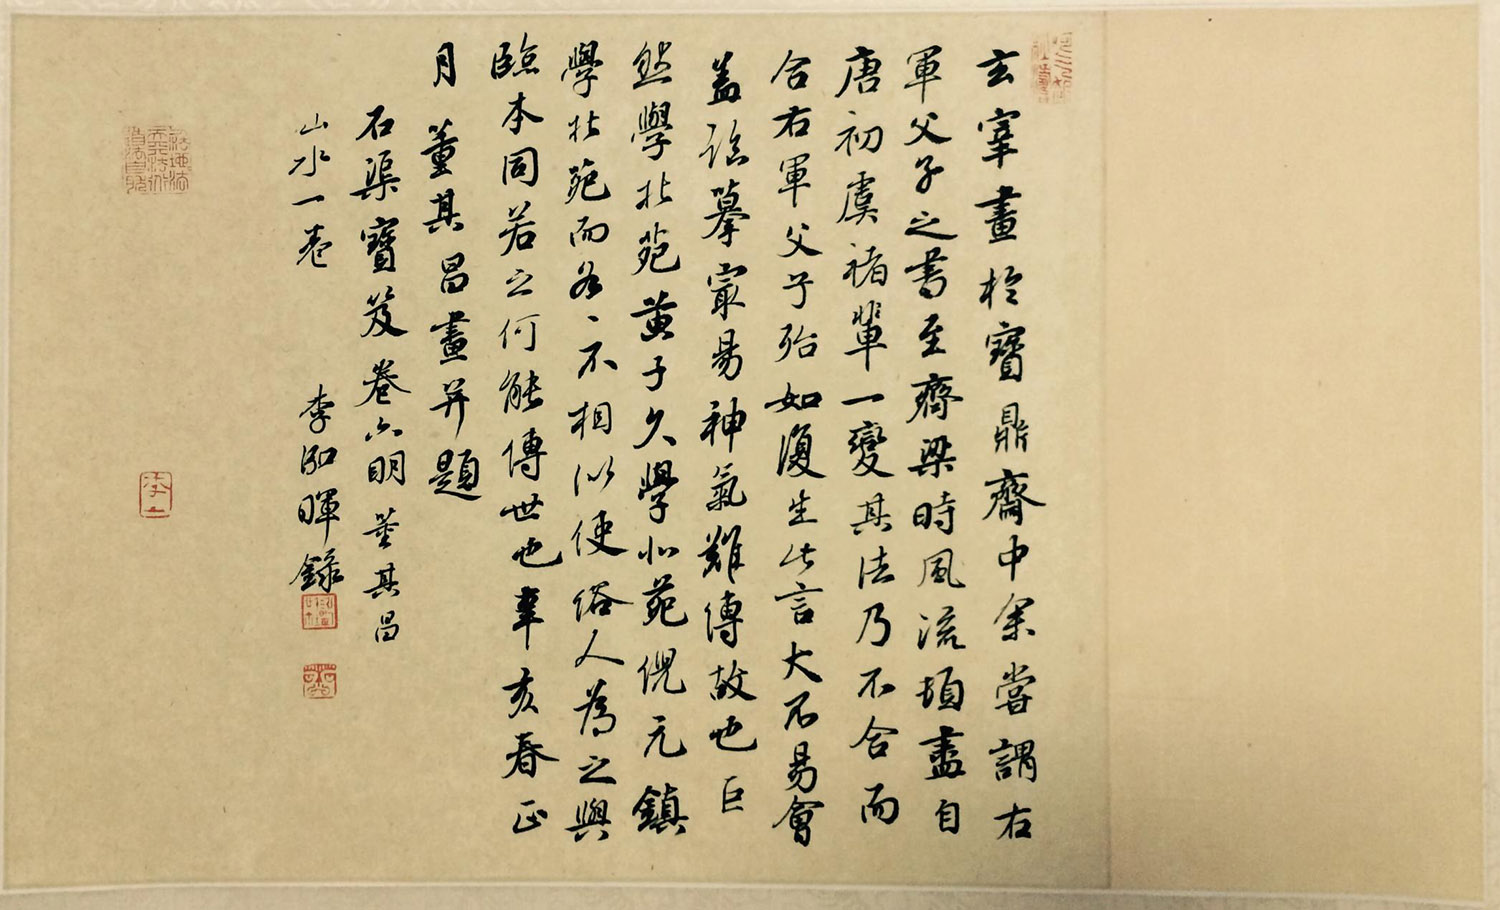 玄宰畫於寶鼎齋中余嘗謂右
軍父子之書至齊梁時風流頓盡自
唐初虞褚輩一變其法乃不合而
合右軍父子殆如復生此言大不易會
蓋臨摹最易神氣難傳故也巨
然學北苑黃子久學北苑倪元鎮
學北苑而各各不相似使俗人為之與
臨本同若之何能傳世也辛亥春正
月 董其昌畫并題
石渠寶笈卷六明 董其昌
山水一卷
李泓暉錄